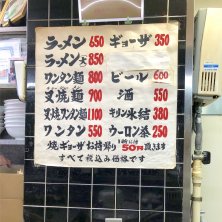 ラーメン 650
ラーメン大 850
ワンタン麺 800
叉焼麺 900
叉焼ワンタン麺 1100
ワンタン 550
ギョーザ 350
ビール 600
酒 550
キリン氷結 380
ウーロン茶 250
焼ギョーザお持帰り 50円頂きます
すべて税込み価格です